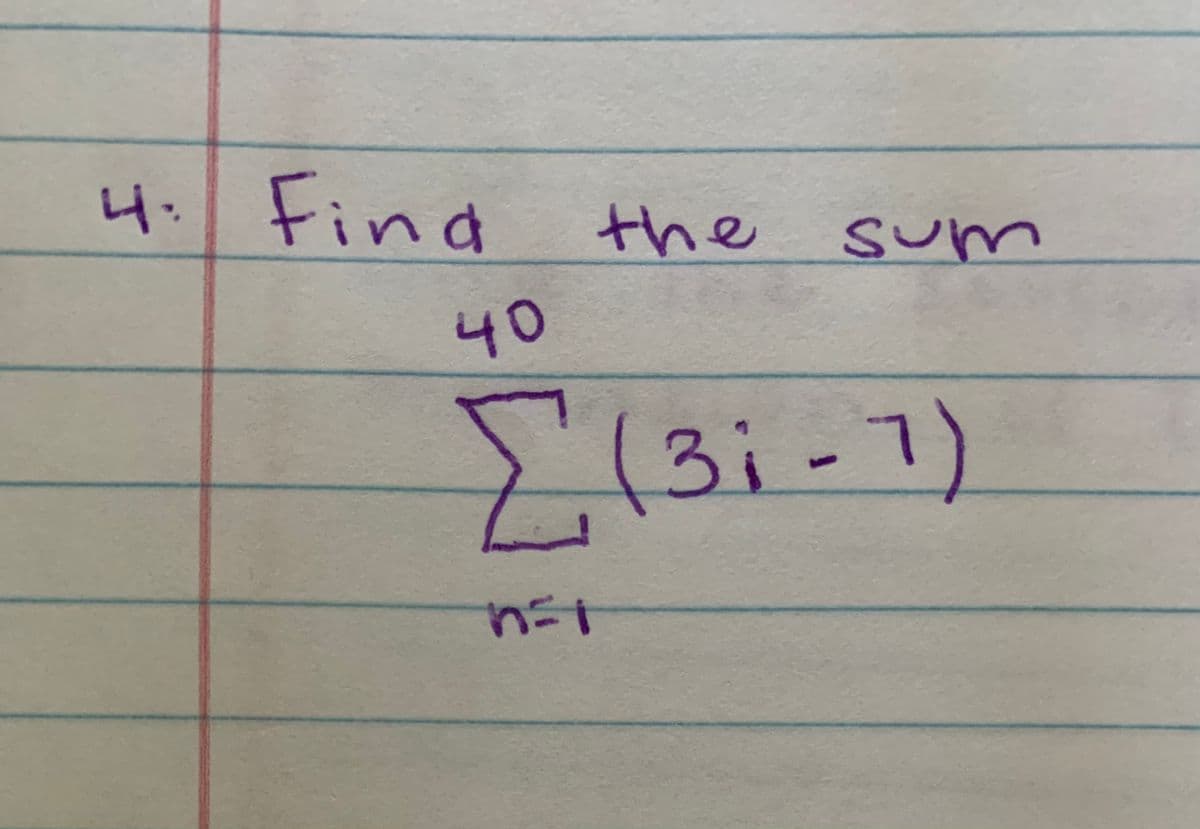 4. Find the sum
40
∑(3i-7)
n=1